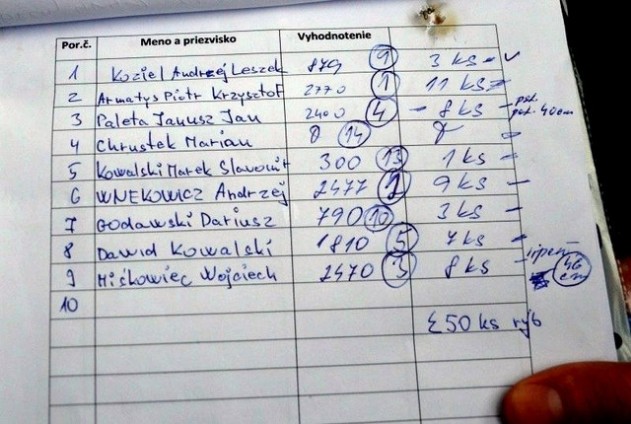 Por.č. Meno a priezvisko Vyhodnotenie
1 Kozieł Andrzej Leszek 879 9 3 ks - ✓
2 Armatys Piotr Krzysztof 2770 1 11 ks -
3 Paleta Janusz Jan 2400 4 - 8 ks - 40cm
4 Chrustek Marian 0 14
5 Kowalski Marek Sławomir 300 13 1 ks -
6 WNEKOWICZ Andrzej 2477 2 9 ks -
7 Godawski Dariusz 790 10 3 ks -
8 Dawid Kowalski 1810 5 7 ks - lipeň
9 Miśkowiec Wojciech 2470 3 8 ks - 46 cm
10
Σ 50 ks rýb